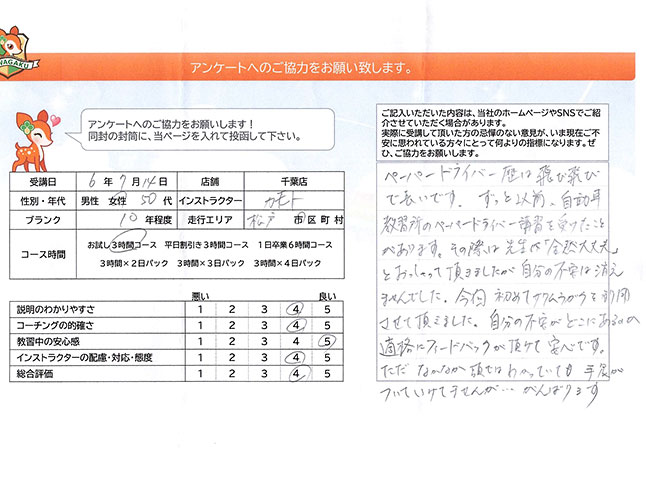 WAGAKU
アンケートへのご協力をお願い致します。
アンケートへのご協力をお願いします！
同封の封筒に、当ページを入れて投函して下さい。
受講日 6年7月14日 店舗 千葉店
性別・年代 男性 女性 50代 インストラクター カモト
ブランク 10年程度 走行エリア 松戸 市区町村
コース時間 お試し3時間コース 平日割引き3時間コース 1日卒業6時間コース
3時間×2日パック 3時間×3日パック 3時間×4日パック
悪い 良い
説明のわかりやすさ 1 2 3 4 5
コーチングの的確さ 1 2 3 4 5
教習中の安心感 1 2 3 4 5
インストラクターの配慮・対応・態度 1 2 3 4 5
総合評価 1 2 3 4 5
ご記入いただいた内容は、当社のホームページやSNSでご紹
介させていただく場合があります。
実際に受講して頂いた方の忌憚のない意見が、いま現在ご不
安に思われている方々にとって何よりの指標になります。ぜ
ひ、ご協力をお願いします。
ペーパードライバー歴は飛び飛び
で長いです。ずっと以前、自動車
教習所のペーパードライバー講習を受けたこと
があります。その際は先生が「全然大丈夫」
とおっしゃって頂きましたが自分の不安は消え
ませんでした。今回 初めてサワムラガクを利用
させて頂きました。自分の不安がどこにあるのか
適格にフィードバックが頂けて安心です。
ただ なかなか頭ではわかっていても 手足が
ついていけてませんが… がんばります